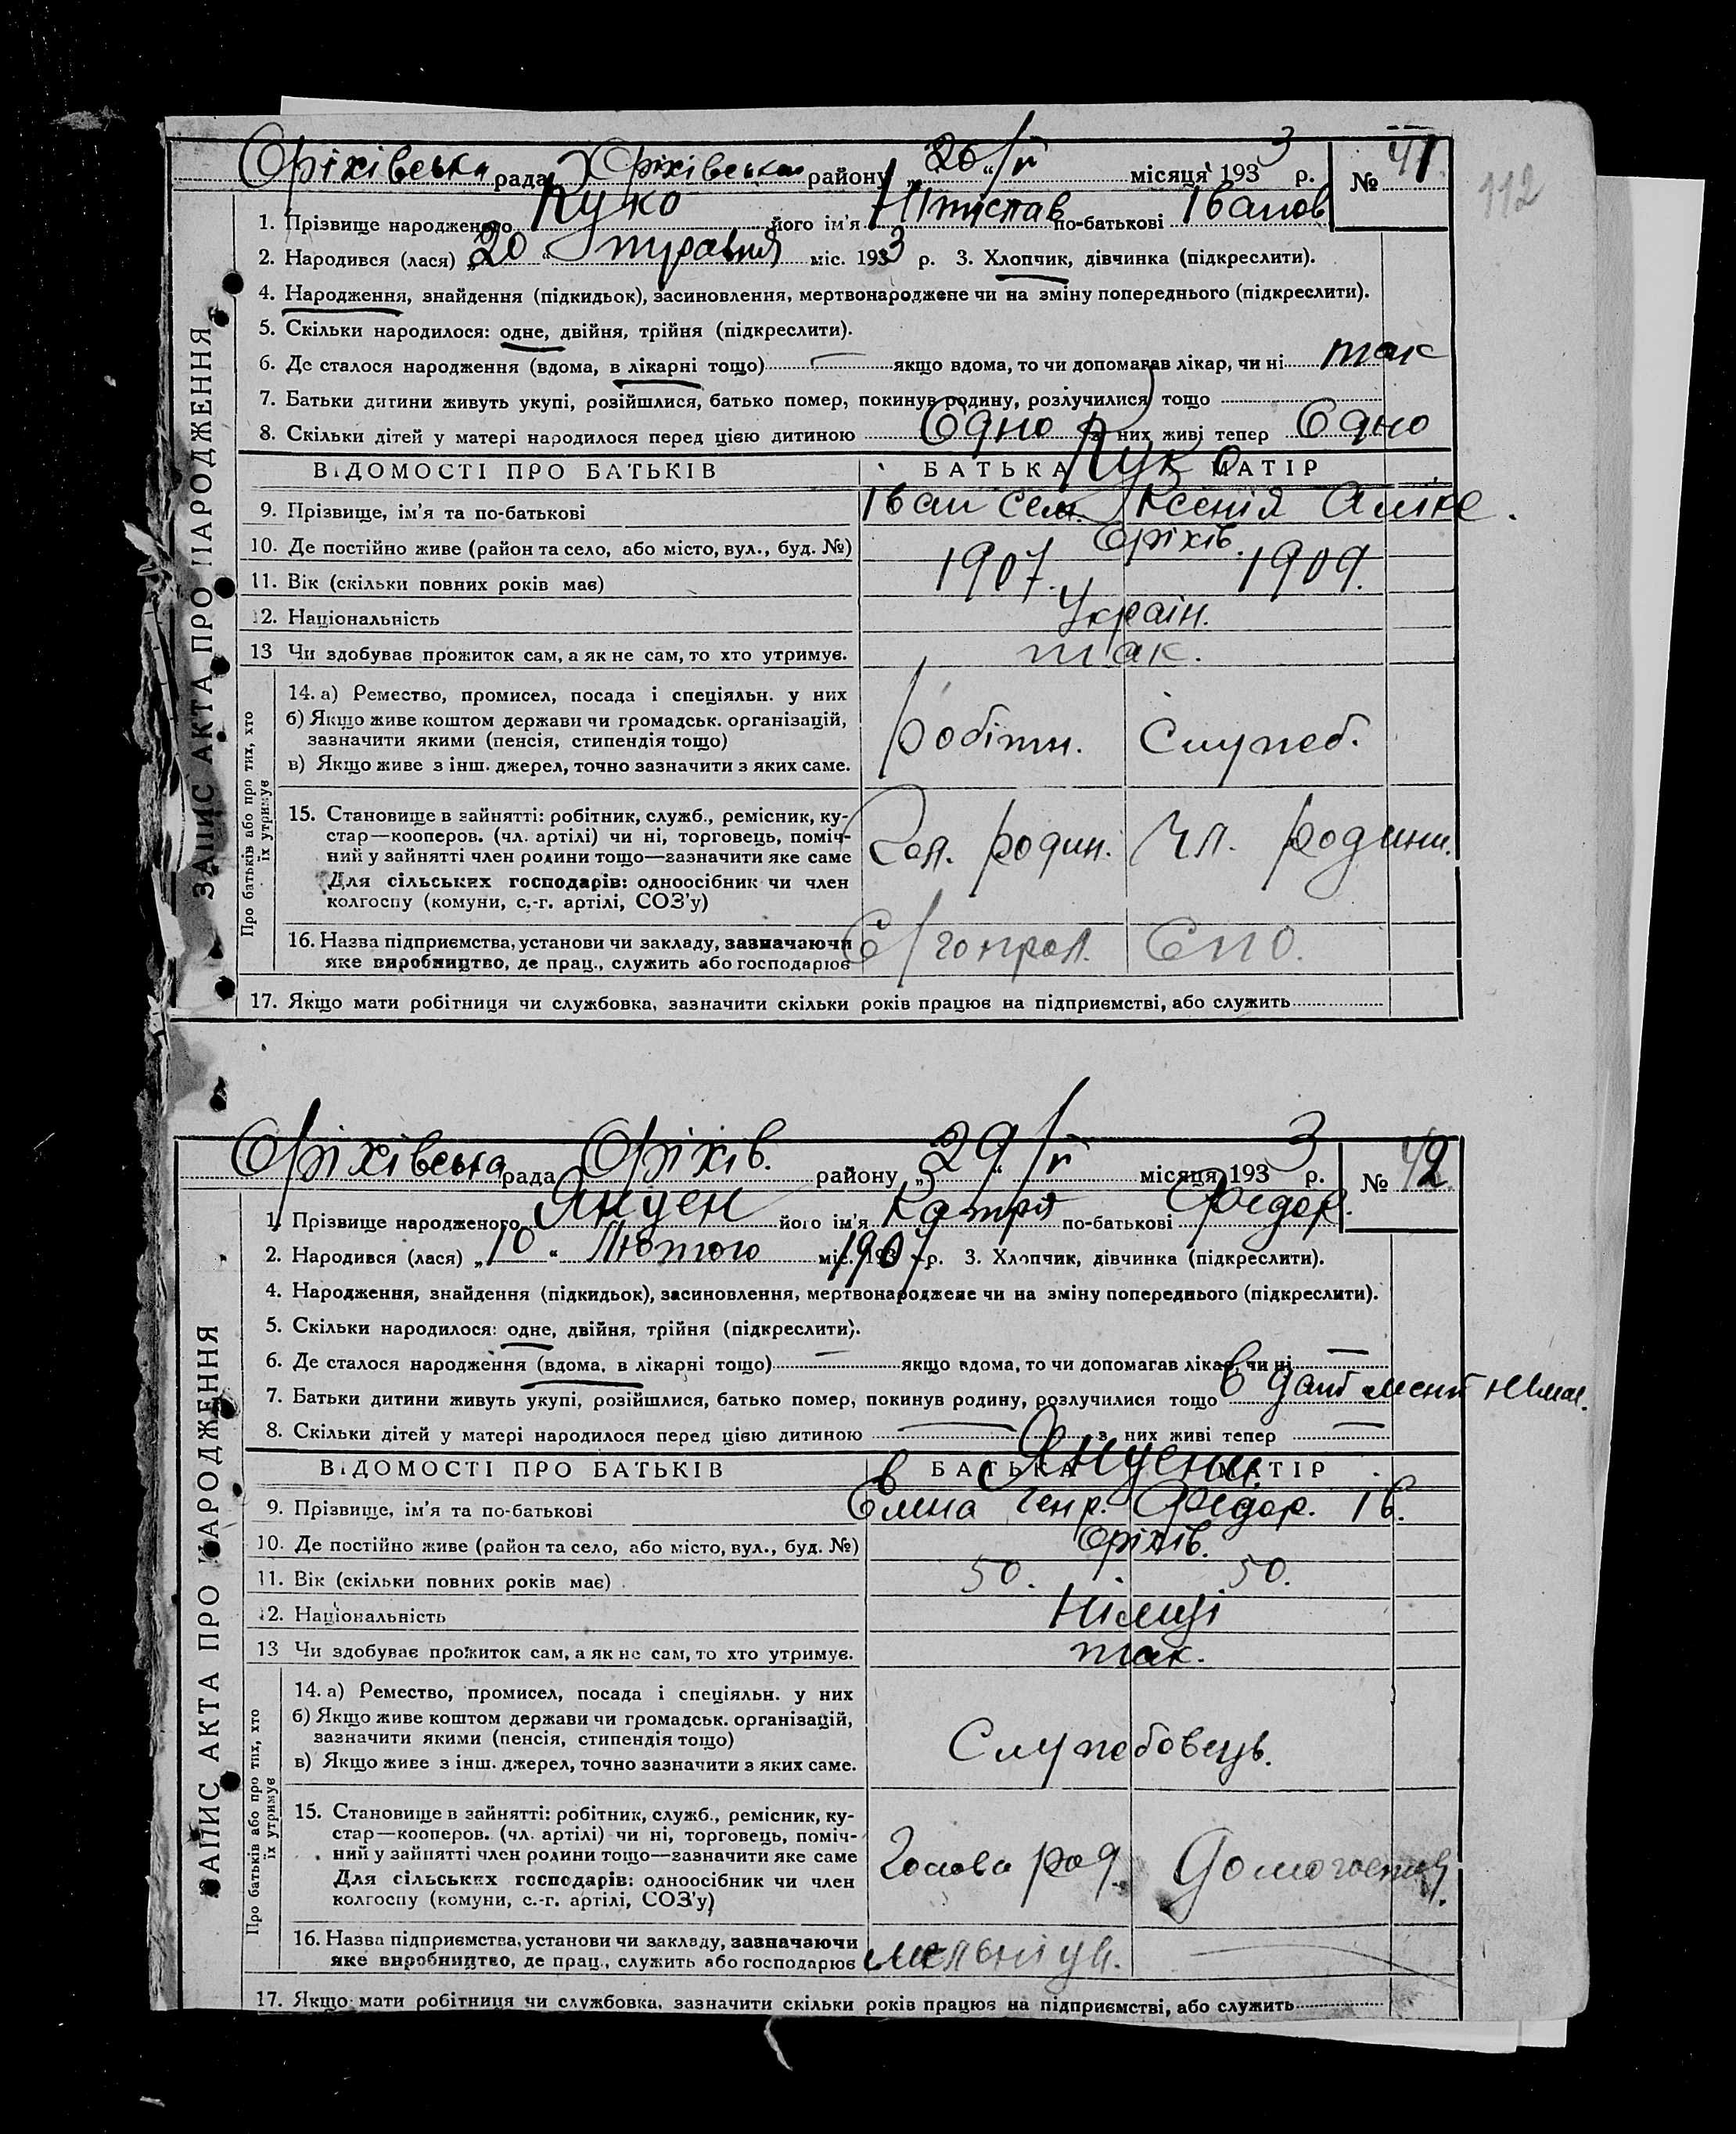 112
Оріхівська рада Оріхівська району „26“ /V місяця 1933 р. № 41
1. Прізвище народженого Куко його ім'я Мтислав по-батькові Іванов
2. Народився (лася) „20“ травня міс. 1933 р. 3. Хлопчик, дівчинка (підкреслити).
4. Народження, знайдення (підкидьок), засиновлення, мертвонароджене чи на зміну попереднього (підкреслити).
5. Скільки народилося: одне, двійня, трійня (підкреслити).
6. Де сталося народження (вдома, в лікарні тощо) — якщо вдома, то чи допомагав лікар, чи ні так
7. Батьки дитини живуть укупі, розійшлися, батько помер, покинув родину, розлучилися тощо
8. Скільки дітей у матері народилося перед цією дитиною Одно з них живі тепер Одно
ВІДОМОСТІ ПРО БАТЬКІВ БАТЬКА МАТІР
Куко
9. Прізвище, ім'я та по-батькові Іван Сем. Ксенія
10. Де постійно живе (район та село, або місто, вул., буд. №) Оріхів.
11. Вік (скільки повних років має) 1907. 1909.
12. Національність Україн.
13 Чи здобуває прожиток сам, а як не сам, то хто утримує. так.
14. а) Ремество, промисел, посада і спеціяльн. у них
б) Якщо живе коштом держави чи громадськ. організацій,
зазначити якими (пенсія, стипендія тощо) робітн. Служб.
в) Якщо живе з інш. джерел, точно зазначити з яких саме.
15. Становище в зайнятті: робітник, служб., ремісник, ку-
стар—кооперов. (чл. артілі) чи ні, торговець, поміч-
ний у зайнятті член родини тощо—зазначити яке саме Гол. родин. Чл. родини.
Для сільських господарів: одноосібник чи член
колгоспу (комуни, с.-г. артілі, СОЗ'у)
16. Назва підприємства, установи чи закладу, зазначаючи
яке виробництво, де прац., служить або господарює ЄПО.
17. Якщо мати робітниця чи службовка, зазначити скільки років працює на підприємстві, або служить
ЗАПИС АКТА ПРО НАРОДЖЕННЯ
Про батьків або про тих, хто
їх утримує
Оріхівська рада Оріхів. району „29“ /V місяця 1933 р. № 42
1. Прізвище народженого Янцен його ім'я Катря по-батькові Федор.
2. Народився (лася) „10“ Лютого міс. 1907 р. 3. Хлопчик, дівчинка (підкреслити).
4. Народження, знайдення (підкидьок), засиновлення, мертвонароджене чи на зміну попереднього (підкреслити).
5. Скільки народилося: одне, двійня, трійня (підкреслити).
6. Де сталося народження (вдома, в лікарні тощо) — якщо вдома, то чи допомагав лікар, чи ні —
7. Батьки дитини живуть укупі, розійшлися, батько помер, покинув родину, розлучилися тощо в дант мент німа.
8. Скільки дітей у матері народилося перед цією дитиною — з них живі тепер —
ВІДОМОСТІ ПРО БАТЬКІВ БАТЬКА МАТІР
Янцени
9. Прізвище, ім'я та по-батькові Генр. Федор. Ів.
10. Де постійно живе (район та село, або місто, вул., буд. №) Оріхів.
11. Вік (скільки повних років має) 50. 50.
12. Національність Німці
13 Чи здобуває прожиток сам, а як не сам, то хто утримує. так.
14. а) Ремество, промисел, посада і спеціяльн. у них
б) Якщо живе коштом держави чи громадськ. організацій,
зазначити якими (пенсія, стипендія тощо) Службовець.
в) Якщо живе з інш. джерел, точно зазначити з яких саме.
15. Становище в зайнятті: робітник, служб., ремісник, ку-
стар—кооперов. (чл. артілі) чи ні, торговець, поміч-
ний у зайнятті член родини тощо—зазначити яке саме Голова род.
Для сільських господарів: одноосібник чи член
колгоспу (комуни, с.-г. артілі, СОЗ'у)
16. Назва підприємства, установи чи закладу, зазначаючи
яке виробництво, де прац., служить або господарює мельниця. —
17. Якщо мати робітниця чи службовка, зазначити скільки років працює на підприємстві, або служить
ЗАПИС АКТА ПРО НАРОДЖЕННЯ
Про батьків або про тих, хто
їх утримує